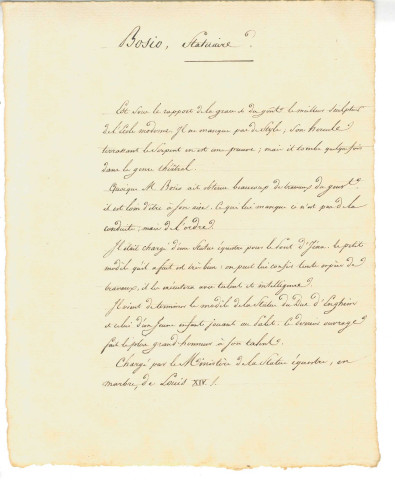 Bosio, Statuaire.
Est sous le rapport de la grace & du goût le meilleur sculpteur
de l'école moderne. Il ne manque pas de style, son hercule
terrassant le Serpent en est une preuve; mais il tombe quelque fois
dans le genre théâtral.
Quoique M. Bosio ait obtenu beaucoup de travaux du gouvt.
il est loin d'être à son aise. Ce qui lui manque ce n'est pas de la
conduite; mais de l'ordre.
Il était chargé d'une statue équestre pour le Pont d'Jéna. le petit
modèle qu'il a fait est très bien: on peut lui confier toute espèce de
travaux, il les exécutera avec talent et intelligence.
Il vient de terminer le modèle de la Statue du Duc d'Enghein
et celui d'un jeune enfant jouant au Palet. Ce dernier ouvrage
fait le plus grand honneur à son talent.
Chargé par le Ministère de la Statue équestre, en
marbre, de Louis XIV.